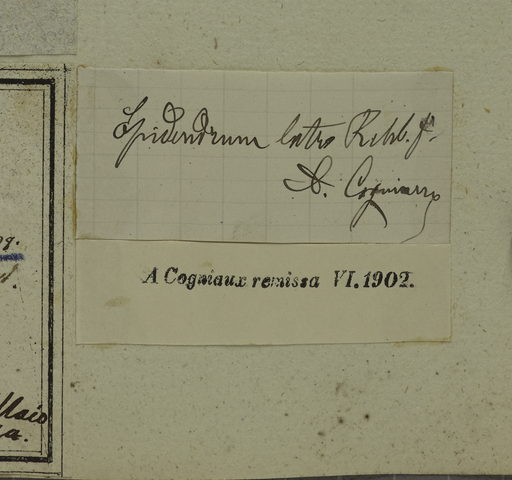 Epidendrum latro Rchb. f.
A. Cogniaux
A Cogniaux remissa VI. 1902.
Maio